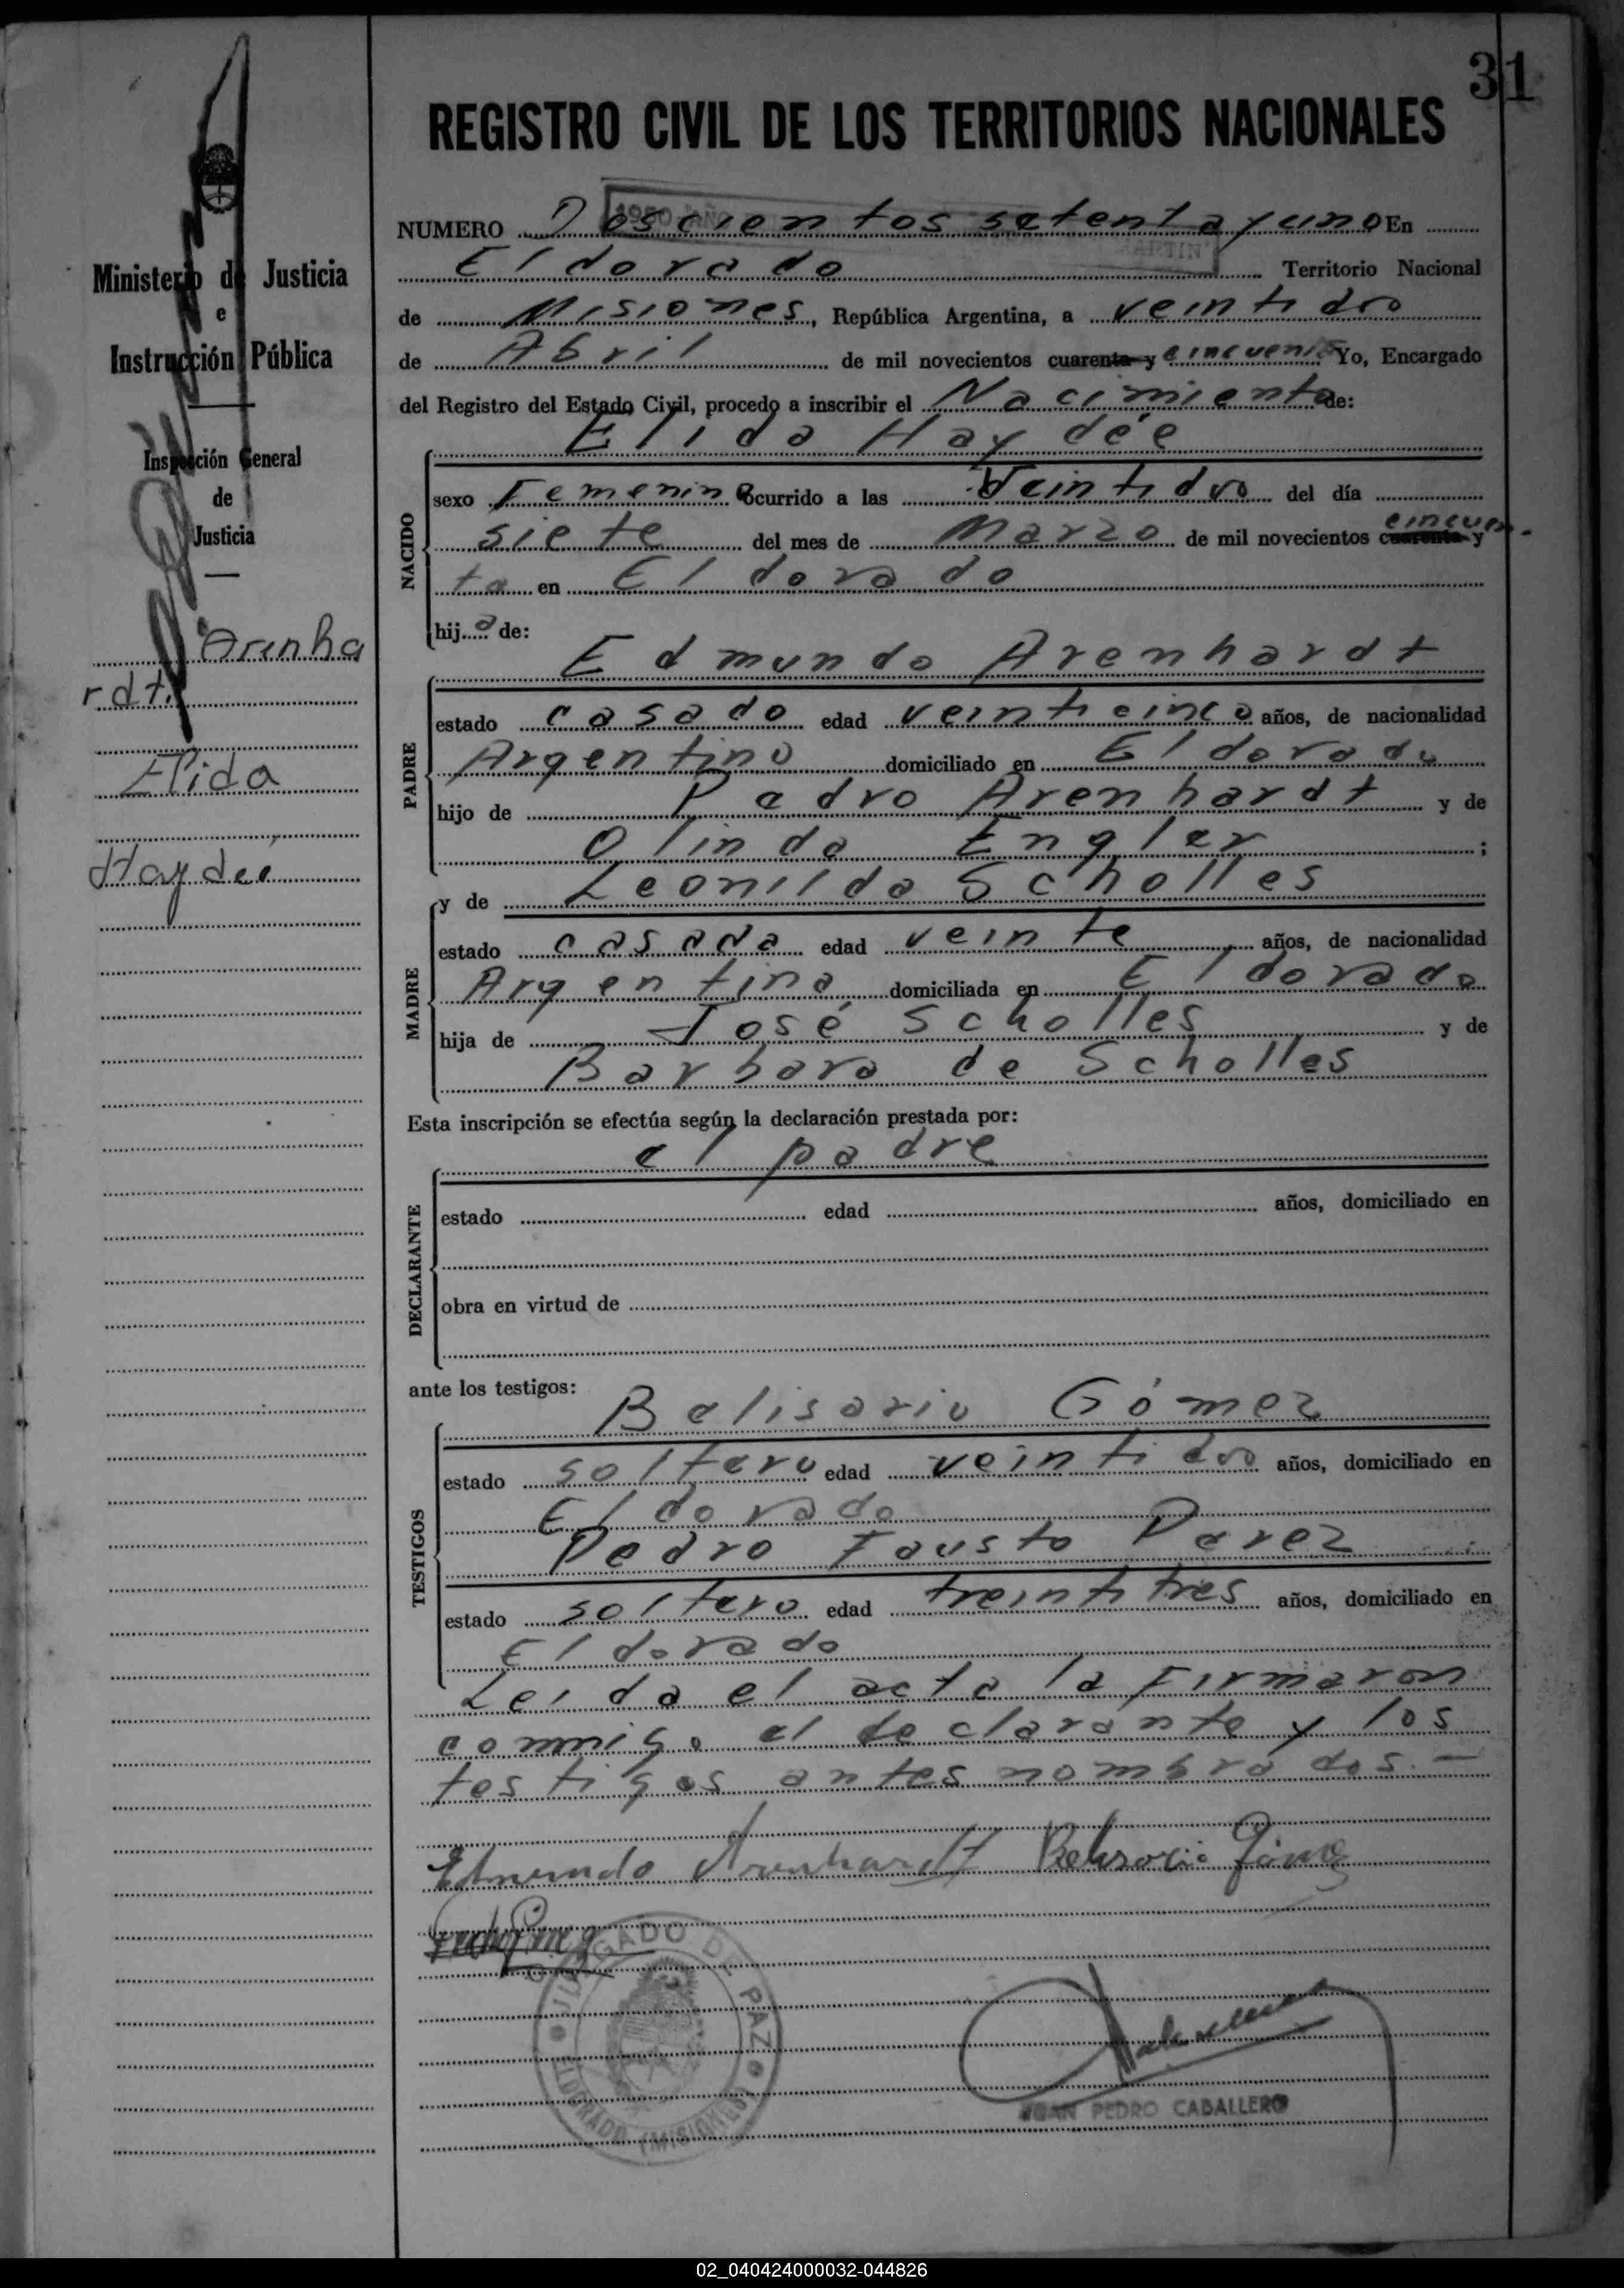 31
REGISTRO CIVIL DE LOS TERRITORIOS NACIONALES
NUMERO Doscientos setenta y uno En
Eldorado Territorio Nacional
de Misiones, República Argentina, a veintidos
de Abril de mil novecientos cuarenta y cincuenta Yo, Encargado
del Registro del Estado Civil, procedo a inscribir el Nacimiento de:
Elida Haydée
NACIDO
sexo Femenino ocurrido a las Veintidos del día
siete del mes de Marzo de mil novecientos cuarenta y cincuen-
ta en Eldorado
hija de:
Edmundo Arenhardt
PADRE
estado casado edad veinticinco años, de nacionalidad
Argentino domiciliado en Eldorado
hijo de Pedro Arenhardt y de
Olinda Engler ;
MADRE
y de Leonilda Scholles
estado casada edad veinte años, de nacionalidad
Argentina domiciliada en Eldorado
hija de José Scholles y de
Barbara de Scholles
Esta inscripción se efectúa según la declaración prestada por:
el padre
DECLARANTE
estado edad años, domiciliado en
obra en virtud de
ante los testigos:
Belisario Gómez
TESTIGOS
estado soltero edad veintidos años, domiciliado en
Eldorado
Pedro Fausto Perez
estado soltero edad treintitres años, domiciliado en
Eldorado
Leida el acta la firmaron
conmigo el declarante y los
testigos antes nombrados.—
Edmundo Arenhardt Belisario Gómez
JUZGADO DE PAZ
ELDORADO (MISIONES)
JUAN PEDRO CABALLERO
Ministerio de Justicia
e
Instrucción Pública
Inspección General
de
Justicia
Arenha
rdt.
Elida
Haydée
02_040424000032-044826